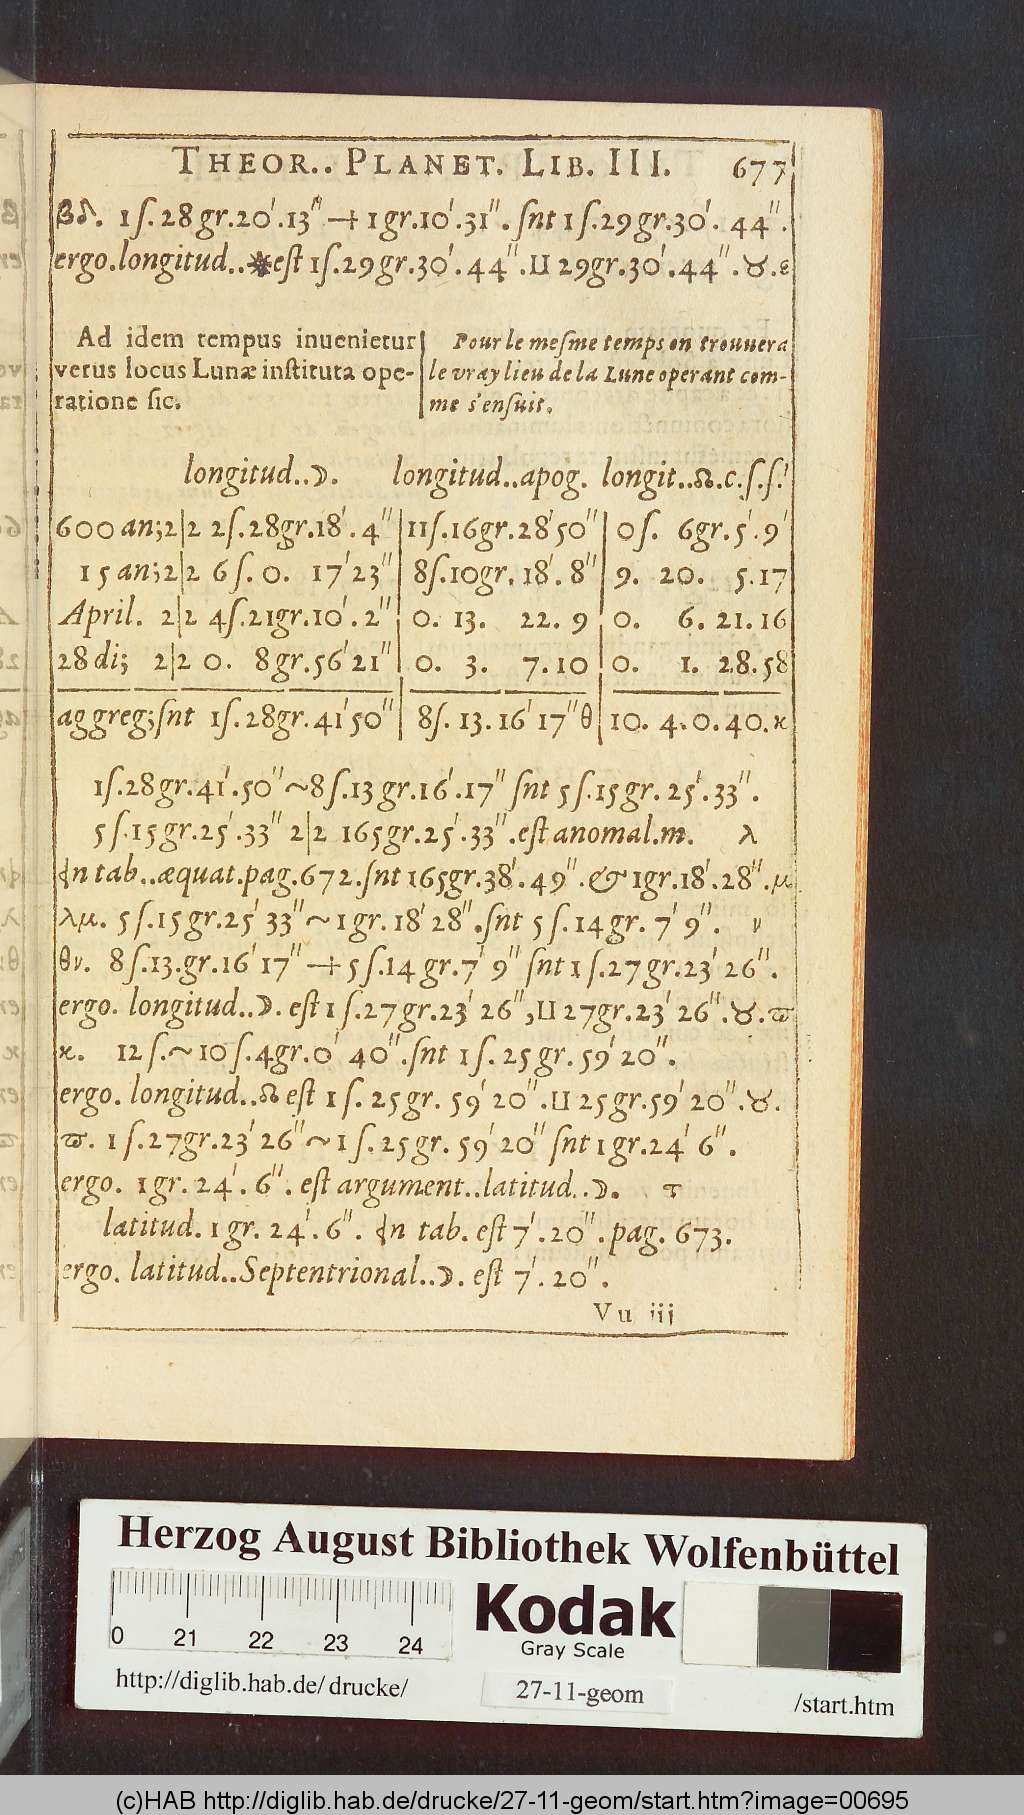 THEOR.. PLANET. LIB. III. 677
βδ. 1ſ.28gr.20'.13'' ~+ 1gr.10'.31''. ſnt 1ſ.29gr.30'. 44''.
ergo.longitud..☀eſt 1ſ.29gr.30'.44''.⊔ 29gr.30'.44''.♉.ε
Ad idem tempus inuenietur
verus locus Lunæ inſtituta ope-
ratione ſic.
Pour le meſme temps on trouuera
le vray lieu de la Lune operant com-
me s'enſuit.
longitud..☽. longitud..apog. longit..☊.c.ſ.ſ.'
600 an;2|2 2ſ.28gr.18'.4'' | 11ſ.16gr.28'50'' | 0ſ. 6gr.5'.9'
15 an;2|2 6ſ.0. 17'23'' | 8ſ.10gr.18'.8'' | 9. 20. 5.17
April. 2|2 4ſ.21gr.10'.2'' | 0. 13. 22. 9 | 0. 6.21.16
28 di; 2|2 0. 8gr.56'21'' | 0. 3. 7.10 | 0. 1. 28.58
aggreg;ſnt 1ſ.28gr.41'50'' | 8ſ.13.16'17''θ | 10. 4.0.40.κ
1ſ.28gr.41'.50''~8ſ.13gr.16'.17'' ſnt 5ſ.15gr.25'.33''.
5ſ.15gr.25'.33'' 2|2 165gr.25'.33''.eſt anomal.m. λ
In tab..æquat.pag.672.ſnt 165gr.38'.49''.& 1gr.18'.28''.μ
λμ. 5ſ.15gr.25' 33''~1gr.18' 28''.ſnt 5ſ.14gr. 7' 9''. ν
θν. 8ſ.13.gr.16' 17'' ~+ 5ſ.14gr.7' 9'' ſnt 1ſ.27gr.23' 26''.
ergo. longitud..☽. eſt 1ſ.27gr.23' 26'',⊔ 27gr.23' 26''.♉.ϖ
κ. 12ſ.~10ſ.4gr.0' 40''.ſnt 1ſ.25gr.59' 20''.
ergo. longitud..☊ eſt 1ſ.25gr.59' 20''.⊔ 25gr.59' 20''.♉.
ϖ. 1ſ.27gr.23' 26''~1ſ.25gr.59' 20'' ſnt 1gr.24' 6''.
ergo. 1gr.24'.6''. eſt argument..latitud..☽. τ
latitud. 1gr.24'.6''. In tab. eſt 7'.20''.pag.673.
ergo. latitud..Septentrional..☽. eſt 7'.20''.
Vu iij
Herzog August Bibliothek Wolfenbüttel
0 21 22 23 24
Kodak
Gray Scale
http://diglib.hab.de/drucke/ 27-11-geom /start.htm
(c)HAB http://diglib.hab.de/drucke/27-11-geom/start.htm?image=00695